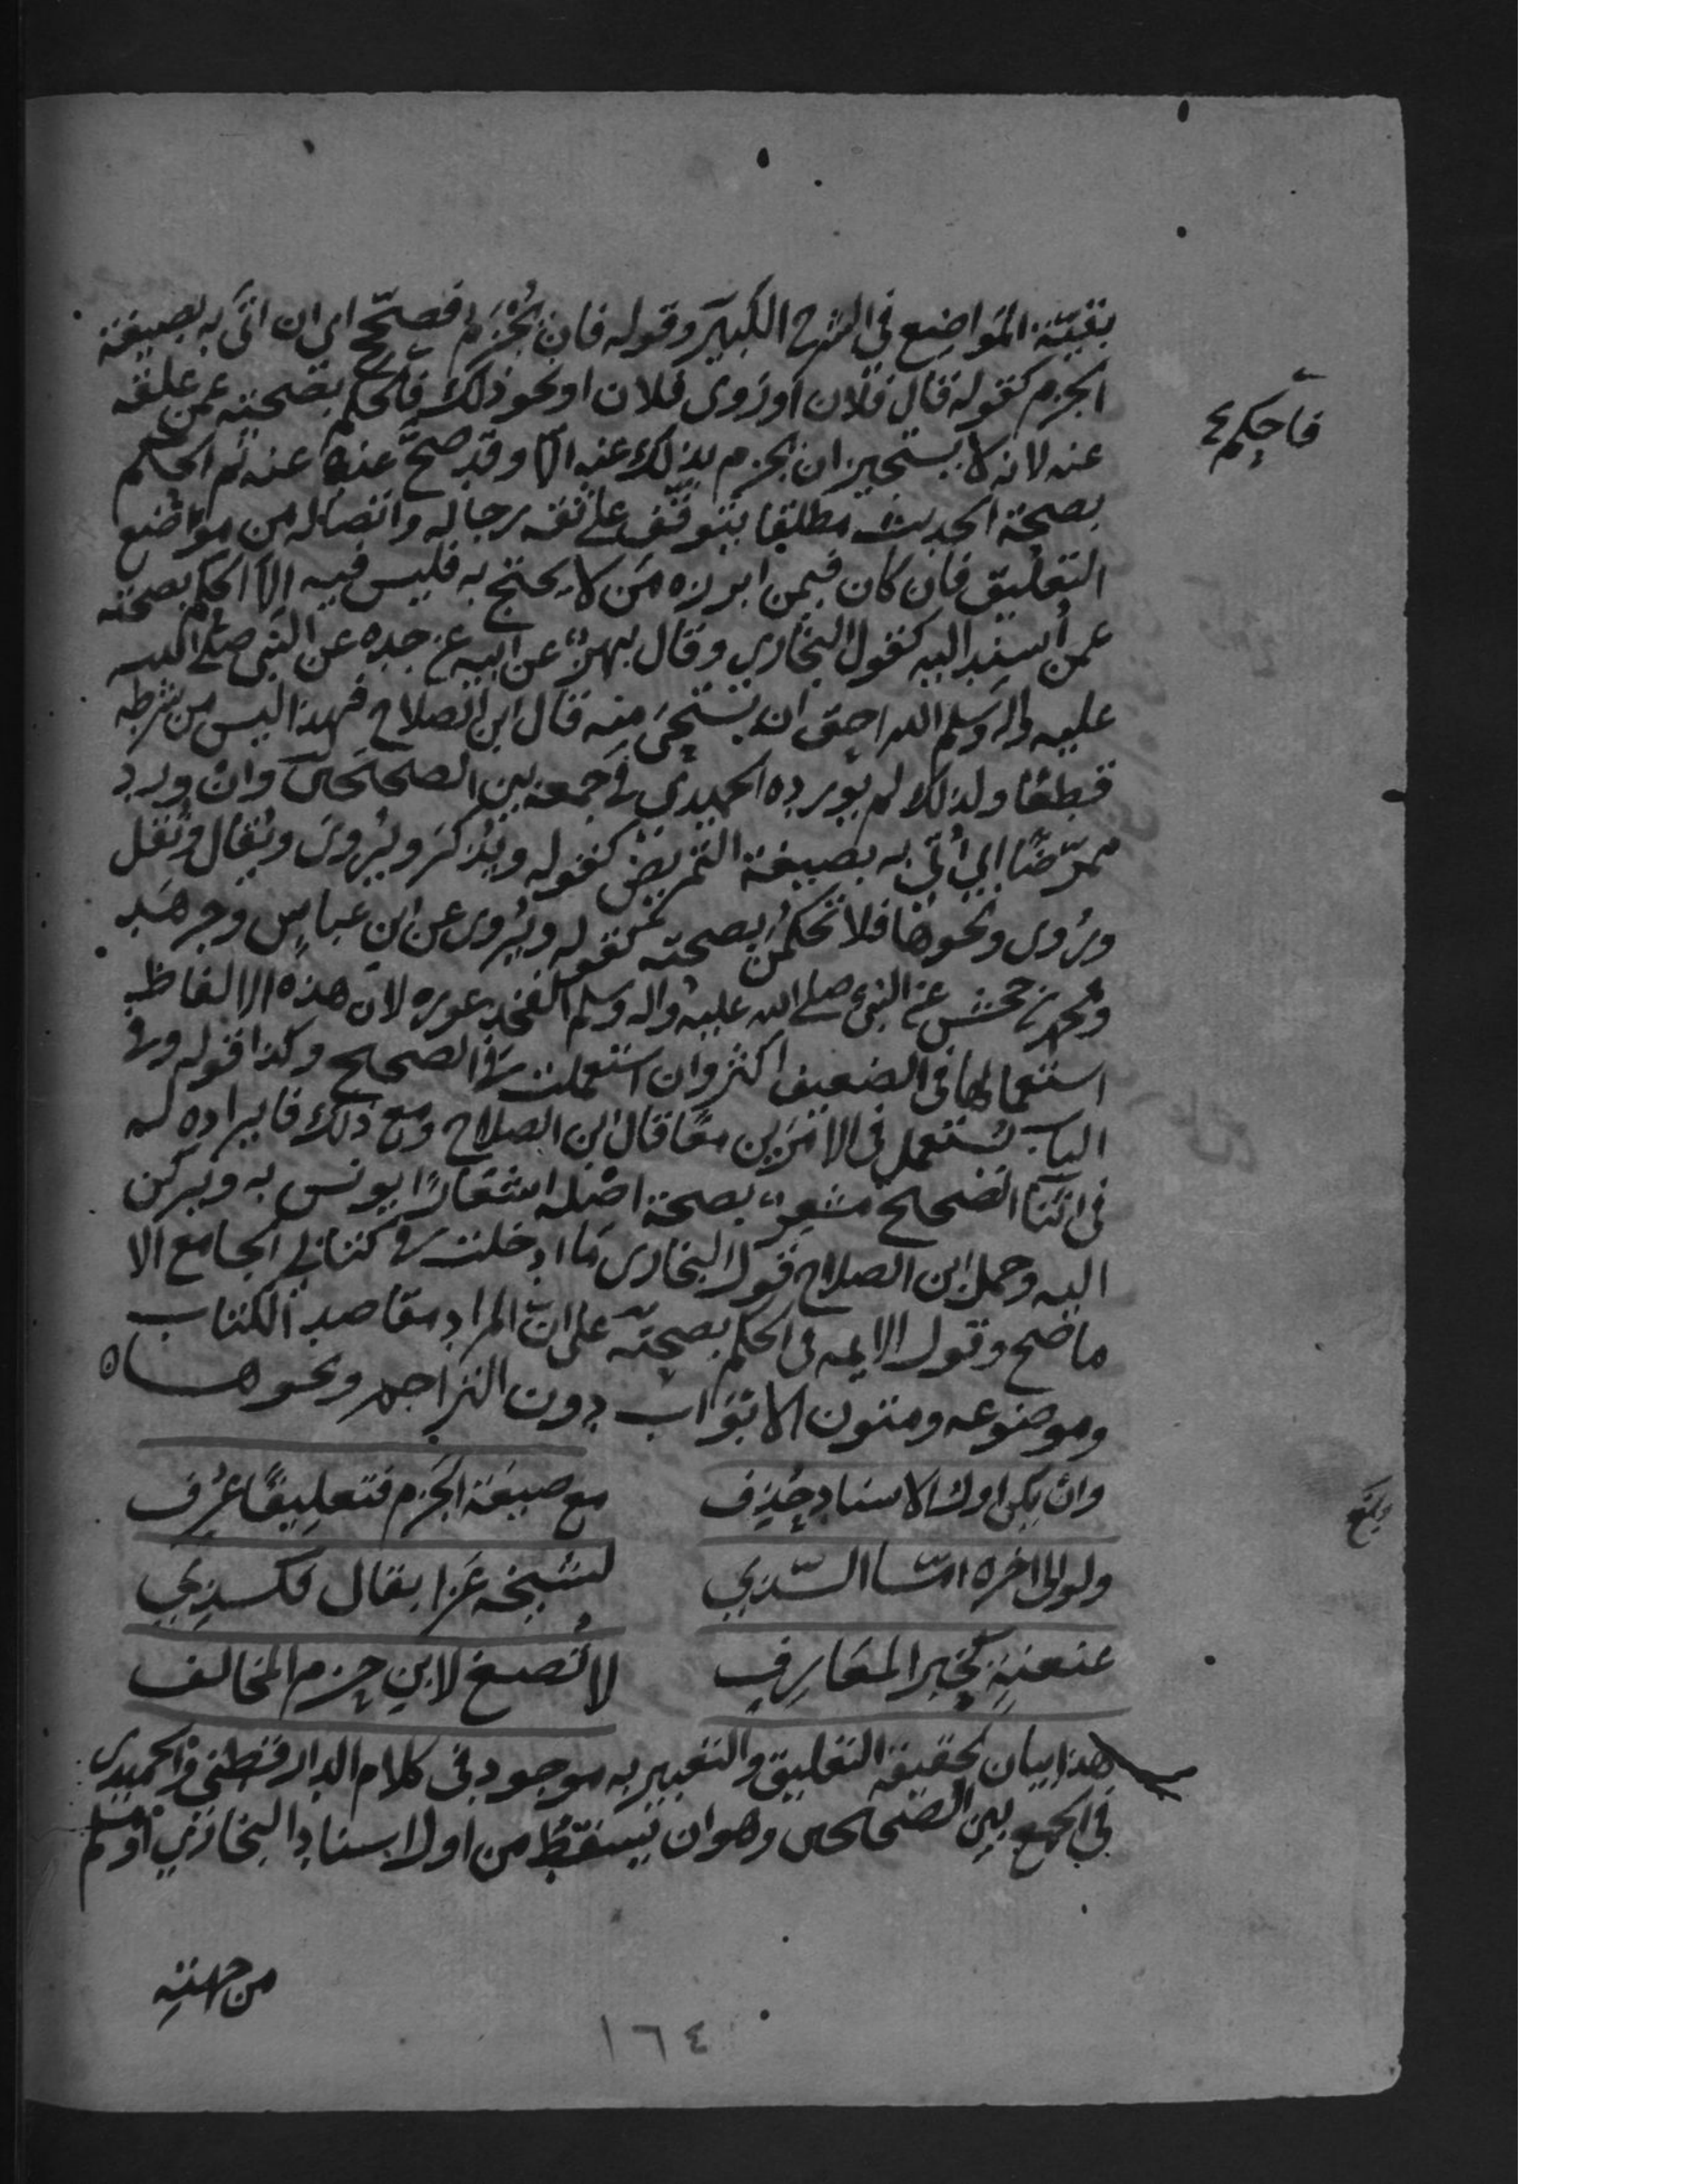 بقيّة المواضع في الشرح الكبير وقوله فان يُجْزَم فصحّح اي ان اتى به بصيغة
الجزم كقوله قال فلان او روى فلان او نحو ذلك فاحكم بصحته عمن علقه
عنه لانه لا يستجيز ان يجزم بذلك عنه الا وقد صح عنده عنه ثم الحكم
بصحة الحديث مطلقا يتوقف على ثقه رجاله واتصاله من مواضع
التعليق فان كان فيمن ابرزه من لا يحتج به فليس فيه الا الحكم بصحته
عمن أسند اليه كقول البخاري وقال بهز عن ابيه عن جده عن النبي صلى الله
عليه واله وسلم الله احق ان يستحيى منه قال ابن الصلاح فهذا ليس من شرطه
قطعًا ولذلك لم يورده الحميدي في جمعه بين الصحيحين وان ورد
ممرّضًا اي أُتي به بصيغة التمريض كقوله ويُذكر ويُروى ويُقال ونُقل
ورُوى ونحوها فلا تحكمن بصحته كقوله ويُروى عن ابن عباس وجرهد
ومحمد بن جحش عن النبي صلى الله عليه واله وسلم الفخذ عوره لان هذه الالفاظ
استعمالها في الضعيف اكثر وان استعملت في الصحيح وكذا قوله وفي
الباب تستعمل في الامرين معًا قال ابن الصلاح ومع ذلك فايراده له
في اثنآ الصحيح مشعر بصحة اصله اشعارًا يونس به ويركن
اليه وحمل ابن الصلاح قول البخاري ما ادخلت في كتابي الجامع الا
ما صح وقول الايمه في الحكم بصحته على ان المراد مقاصد الكتاب
وموضوعه ومتون الابواب دون التراجم ونحوها ه
وان يكن اول الاسناد حُذِف مع صيغة الجزم فتعليقًا عُرِف
ولو الى اخره امّا الّذي لشيخه عزا بقال فكذي
عنعنةٍ كخبر المعازفِ لا تُصغ لابن حزم المخالف
هذا بيان لحقيقة التعليق والتعبير به موجود في كلام الدارقطني والحميدي
في الجمع بين الصحيحين وهو ان يسقط من اول اسناد البخاري او مسلم
من جهته
فاحكم
بلغ
١٦٤